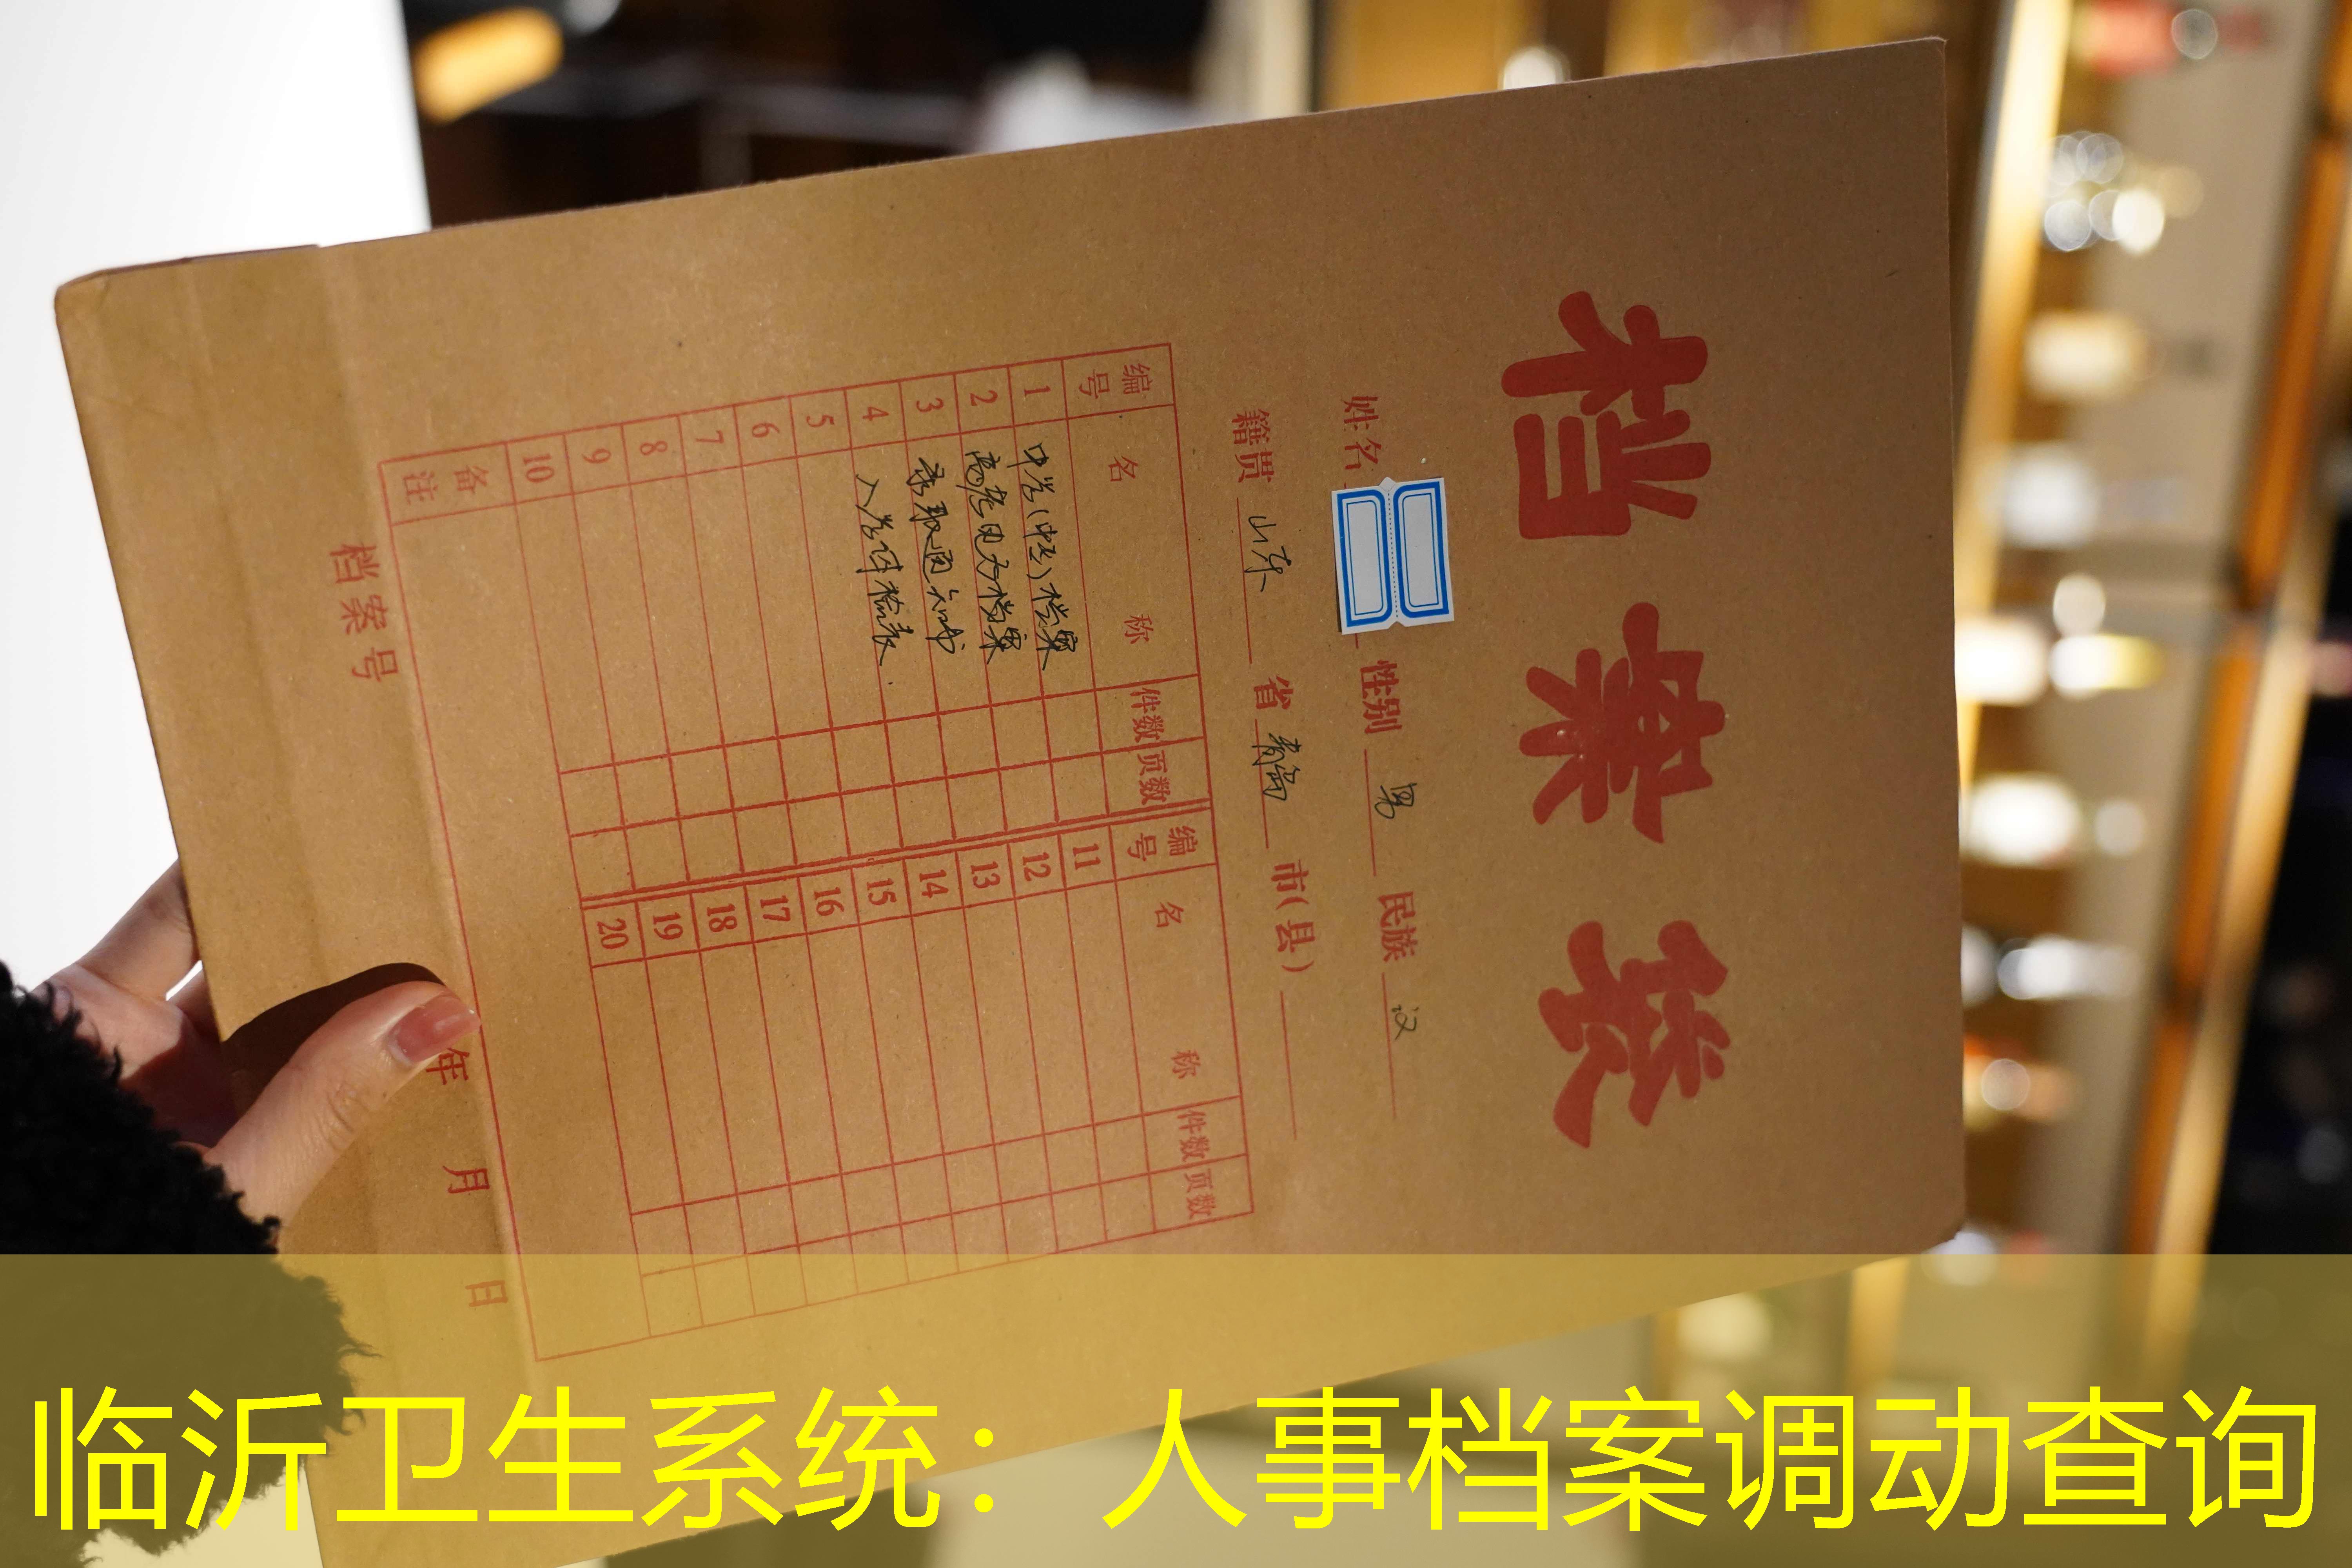 档案袋
姓名 性别 男 民族 汉
籍贯 山东 省 青岛 市(县)
编号 名 称 件数 页数 编号 名 称 件数 页数
1 中学(中专)档案 11
2 高考电子档案 12
3 录取通知书 13
4 入学体检表 14
5 15
6 16
7 17
8 18
9 19
10 20
备注
档案号 年 月 日
临沂卫生系统：人事档案调动查询